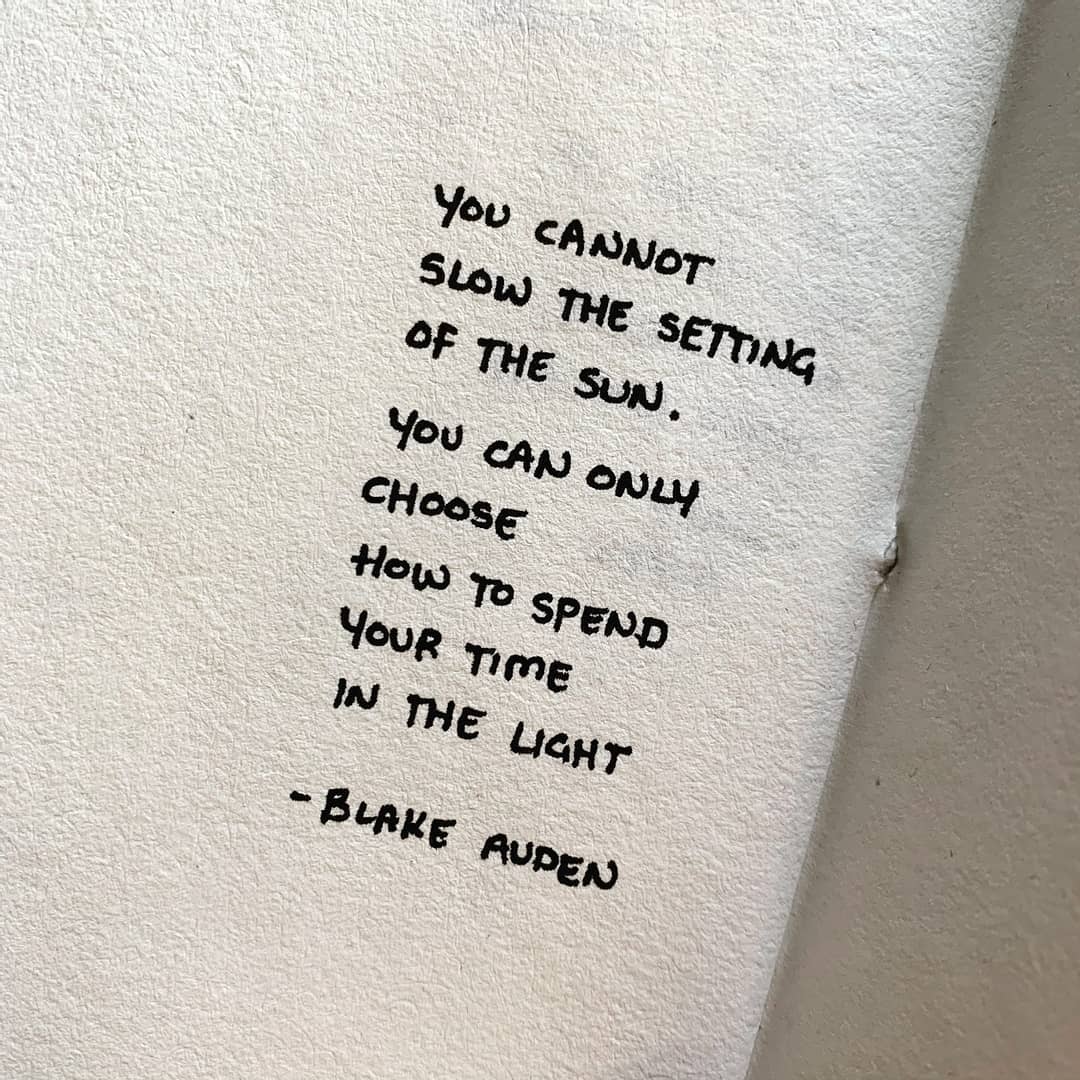 YOU CANNOT
SLOW THE SETTING
OF THE SUN.
YOU CAN ONLY
CHOOSE
HOW TO SPEND
YOUR TIME
IN THE LIGHT
- BLAKE AUDEN